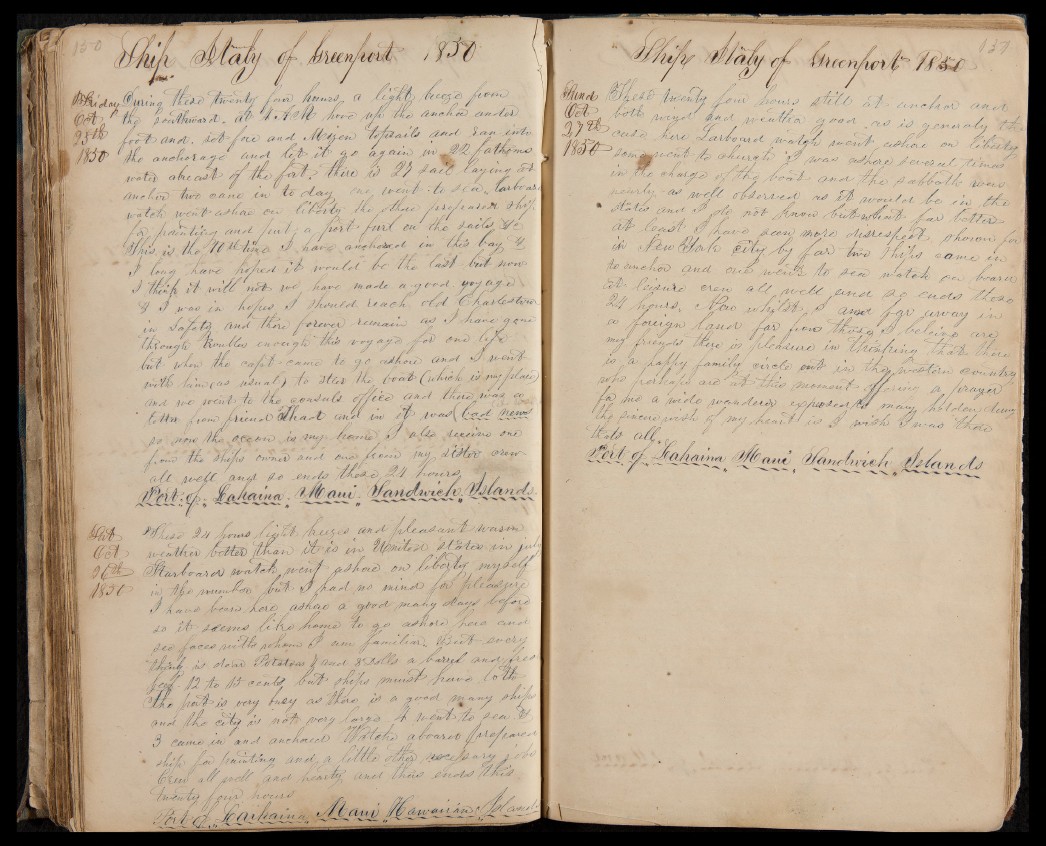 150
Ship Italy of Greenport 1850
Friday During these twenty four hours a light breeze from
Oct the southward, at 4 AM hove up the anchor under
25th foot and set fore and Mizen topsails and ran into
1850 the anchorage and let it go again in 22 fathoms
water abreast of the fort, there is 27 sail laying at
anchor two came in to day one went to sea, larboard
watch went ashore on liberty the other prepared ship
for painting and put a port furl on the sails &c
This is the 10th time I have anchored in this bay &
I long have hoped it would be the last but now
I think it will not we have made a good voyage
& I was in hopes I should reach old Charlestown
in Safety and there forever remain as I have gone
through troubles enough this voyage for one life
but when the capt came to go ashore and I went
with him (as usual) to steer the boat (which is my place)
and we went to the consuls office and there was a
letter from friend and in it was (bad news
so now the ocean is my home I also receive one
from the ships owner and one from my sister crew
all well and so ends these 24 hours
Port of Lahaina. Maui. Sandwich Islands.
Sat These 24 hours light breezes and pleasant warm
Oct weather better than it is in United States in july
26th Starboard watch went ashore on liberty myself
1850 in the number but I had no mind for pleasure
I have been here ashore a good many days before
so it seems like home to go ashore here and
see faces with whom I am familiar. But every
thing is dear Potatoes and dolls a barrel and
12 to 15 cents, but ships must have
The port is very busy as there is a good many ships
and the city is not very large 1 went to sea &
3 came in and anchored Watch aboard prepared
ship for painting and a little other necessary jobs
Crew all well and hearty and thus ends this
twenty four hours
Port of Lahaina Maui Hawaiian Islands
151
Ship Italy of Greenport 1850
Sund These twenty four hours still at anchor and
Oct both winds and weather good as is generaly the
27th case here Larboard watch went ashore on liberty
1850 some went to church I was ashore several times
in the charge of the boat and the sabbath was
nearly as well observed as it would be in the
States and I do not know but what far better
at least I have seen more disrespect shown for
in New York City by far two Ships came in
to anchor and one went to sea watch on board
at leisure crew all well and so ends these
24 hours. Now whilst I am far away in
a foreign land far from those I believe are
my friends there is pleasure in thinking that there
is a happy family circle out in the western country
who perhaps are at this moment offering a prayer
for me a wide wanderer exposed to many hidden
the sincere wish of my heart is I wish I was there
thats all.
Port of Lahaina Maui Sandwich Islands